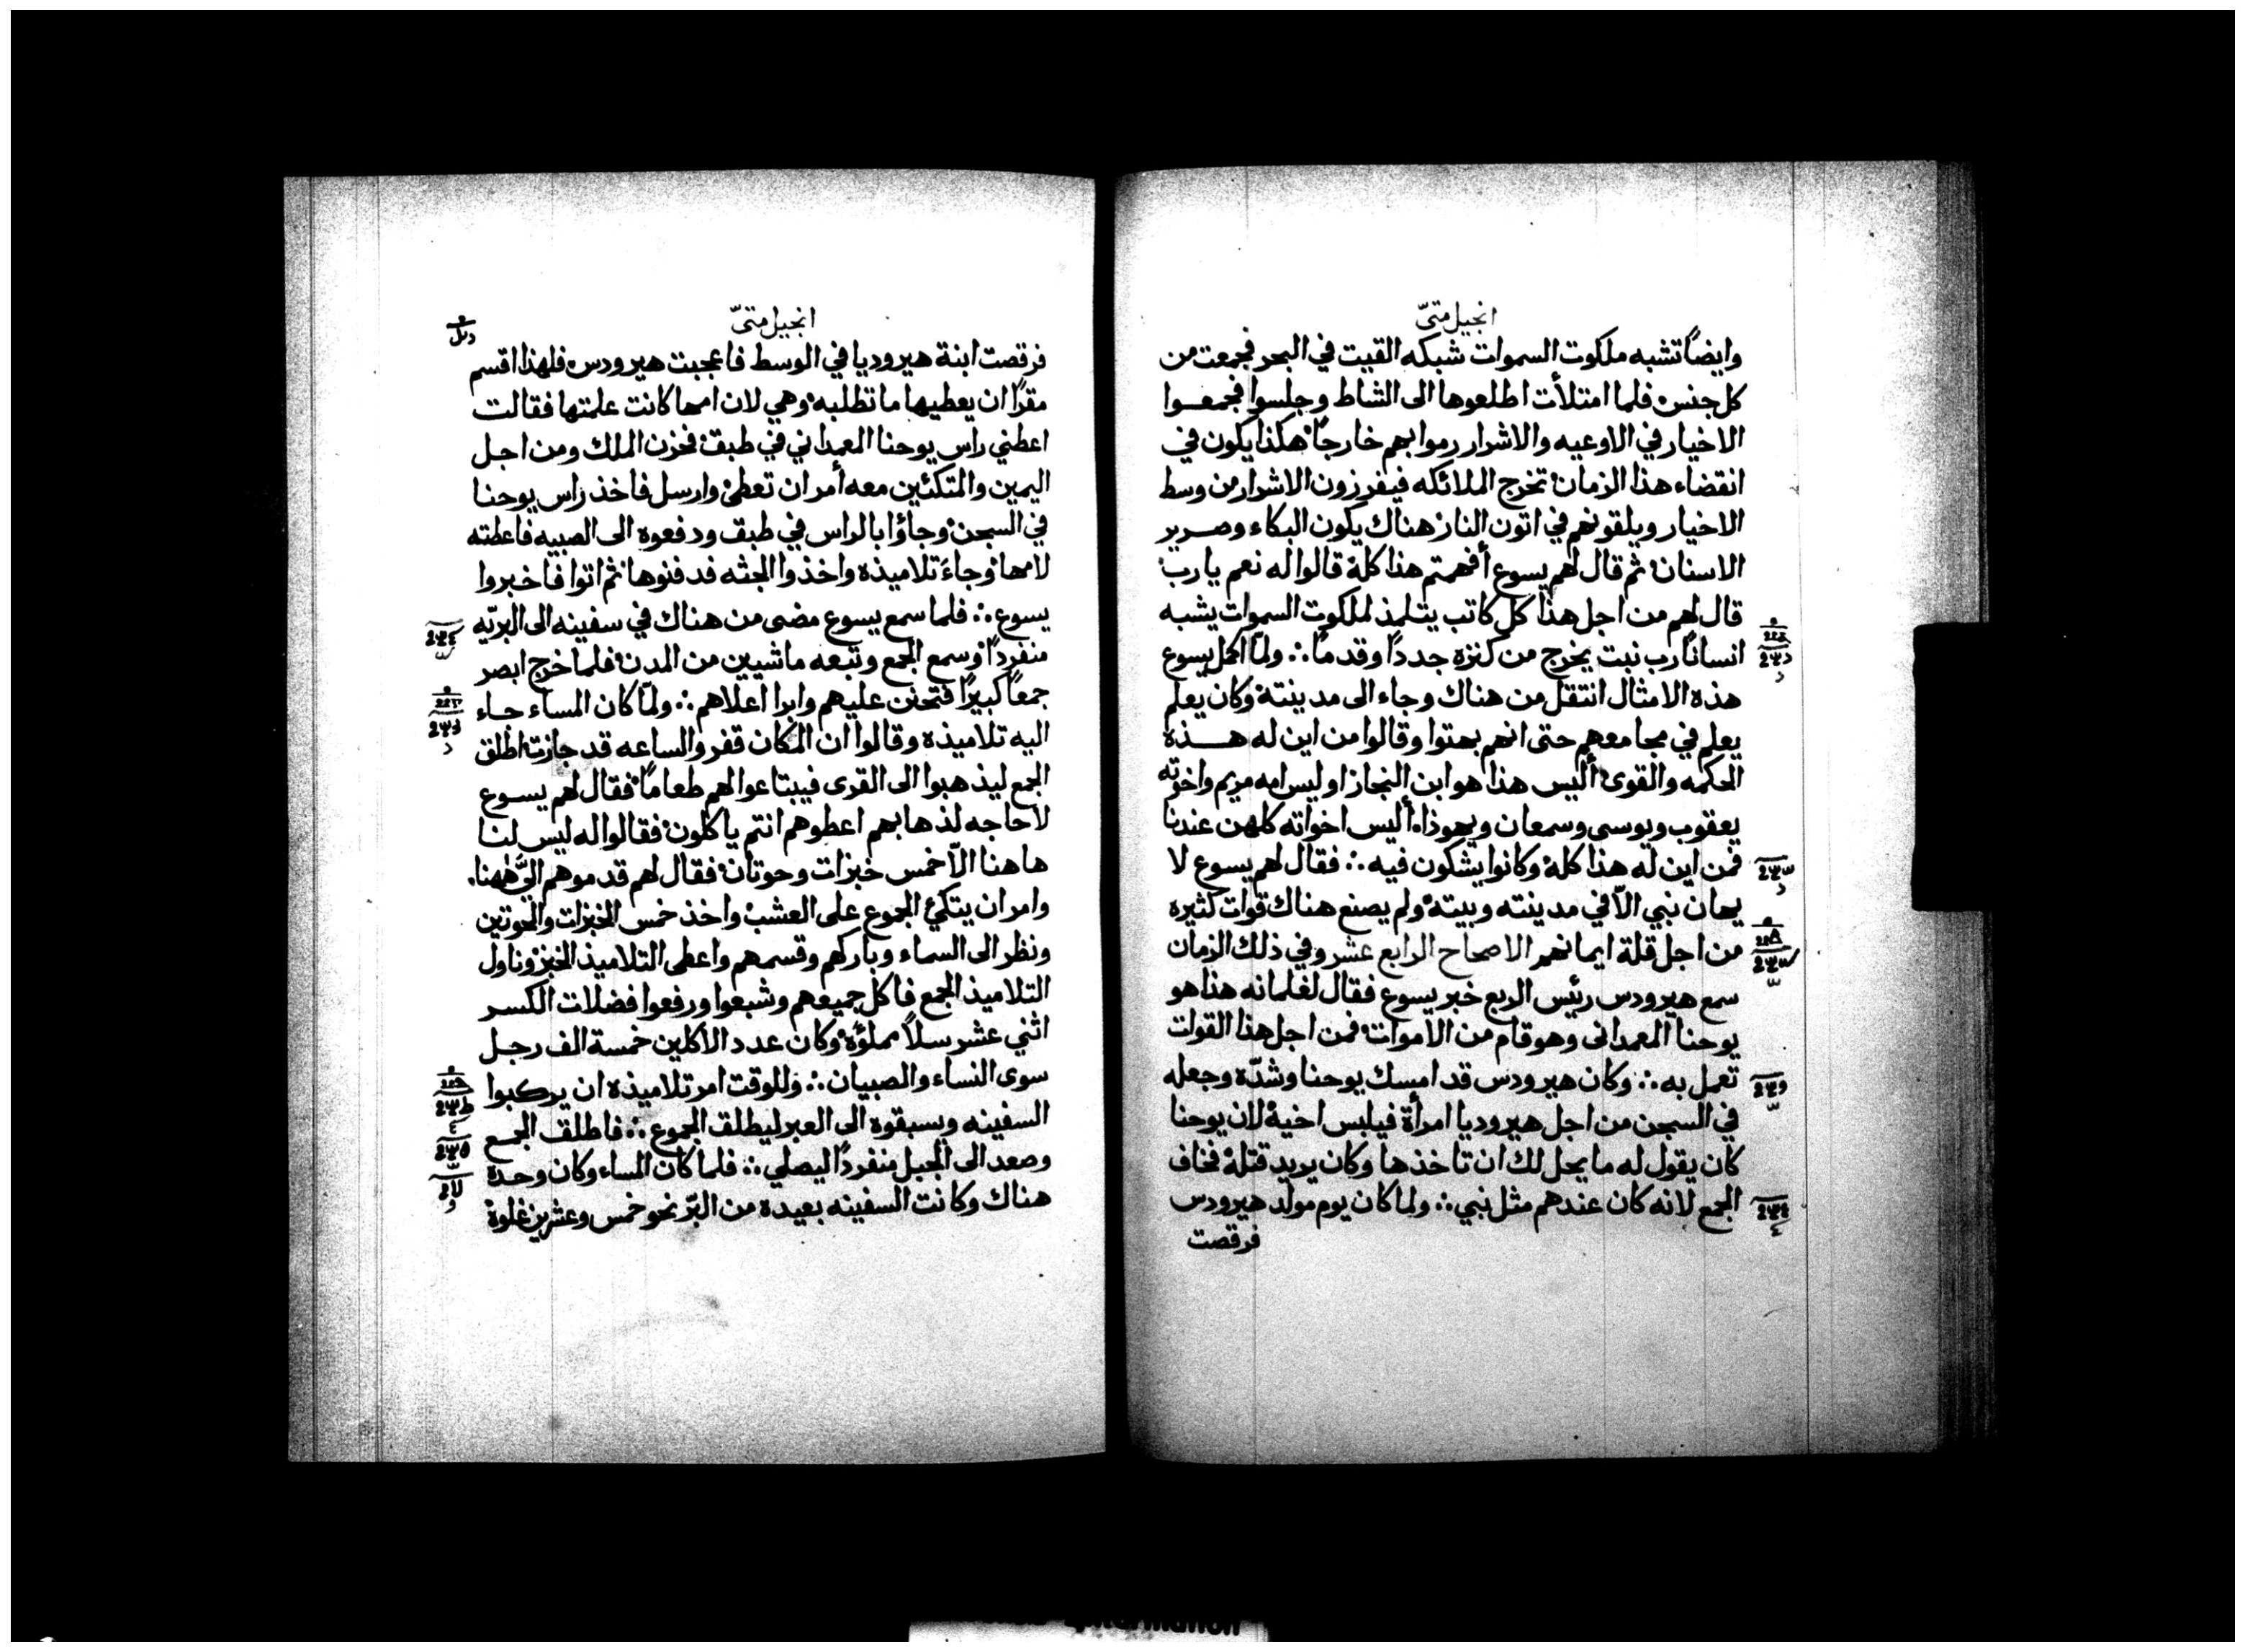 انجيل متىّ
وايضاً تشبه ملكوت السموات شبكه القيت في البحر فجمعت من
كل جنس فلما امتلأت اطلعوها الى الشاط وجلسوا فجمعوا
الاخيار في الاوعيه والاشرار رموا بهم خارجاً هكذا يكون في
انقضاء هذا الزمان تخرج الملائكه فيفرزون الاشرار من وسط
الاخيار ويلقونهم في اتون النار هناك يكون البكاء وصرير
الاسنان ثم قال لهم يسوع أفهمتم هذا كلة قالوا له نعم يا رب
قال لهم من اجل هذا كل كاتب يتلمذ لملكوت السموات يشبه
انساناً رب بيت يخرج من كنزه جدداً وقدماً ∴ ولمّا اكمل يسوع
هذه الامثال انتقل من هناك وجاء الى مدينتة وكان يعلم
يعلم في مجامعهم حتى انهم بهتوا وقالوا من اين له هذه
الحكمه والقوى أليس هذا هو ابن النجار او ليس امه مريم واخوته
يعقوب ويوسى وسمعان ويهوذا أليس اخواته كلهن عندنا
فمن اين له هذا كلة وكانوا يشكون فيه ∴ فقال لهم يسوع لا
يهان نبي الاّ في مدينته وبيتة ولم يصنع هناك قوات كثيره
من اجل قلة ايمانهم الاصحاح الرابع عشر وفي ذلك الزمان
سمع هيرودس رئيس الربع خبر يسوع فقال لغلمانه هذا هو
يوحنا المعمدانى وهو قام من الاموات فمن اجل هذا القوات
تعمل به ∴ وكان هيرودس قد امسك يوحنا وشدّه وجعله
في السجن من اجل هيروديا امرأة فيلبس اخية لان يوحنا
كان يقول له ما يحل لك ان تاخذها وكان يريد قتلة فخاف
الجمع لانه كان عندهم مثل نبي ∴ ولما كان يوم مولد هيرودس
فرقصت
انجيل متىّ
فرقصت ابنة هيروديا في الوسط فاعجبت هيرودس فلهذا اقسم
مقراً ان يعطيها ما تطلبه وهي لان امها كانت علمتها فقالت
اعطني راس يوحنا المعمداني في طبق فحزن الملك ومن اجل
اليمين والمتكئين معه أمر ان تعطى وارسل فاخذ راس يوحنا
في السجن وجاؤا بالراس في طبق ودفعوه الى الصبيه فاعطته
لامها وجاءَ تلاميذه واخذوا الجثه فدفنوها ثم اتوا فاخبروا
يسوع ∴ فلما سمع يسوع مضى من هناك في سفينه الى البريّه
منفرداً وسمع الجمع وتبعه ماشيين من المدن فلما خرج ابصر
جمعاً كبيراً فتحنن عليهم وابرا اعلاهم ∴ ولمّا كان المساء جاء
اليه تلاميذه وقالوا ان المكان قفر والساعه قد جازت اطلق
الجمع ليذهبوا الى القرى فيبتاعوا لهم طعاماً فقال لهم يسوع
لا حاجه لذهابهم اعطوهم انتم ياكلون فقالوا له ليس لنا
هاهنا الاّ خمس خبزات وحوتان فقال لهم قدموهم اليَّ ههنا
وامر ان يتكئ الجموع على العشب واخذ خمس الخبزات والحوتين
ونظر الى السماء وباركهم وقسمهم واعطى التلاميذ الخبز وناول
التلاميذ الجمع فاكل جميعهم وشبعوا ورفعوا فضلات الكسر
اثني عشر سلاً مملؤة وكان عدد الاكلين خمسة الف رجل
سوى النساء والصبيان ∴ وللوقت امر تلاميذه ان يركبوا
السفينه ويسبقوه الى العبر ليطلق الجموع ∴ فاطلق الجمع
وصعد الى الجبل منفرداً ليصلي ∴ فلما كان المساء وكان وحدة
هناك وكانت السفينه بعيده من البرّ نحو خمس وعشرين غلوة